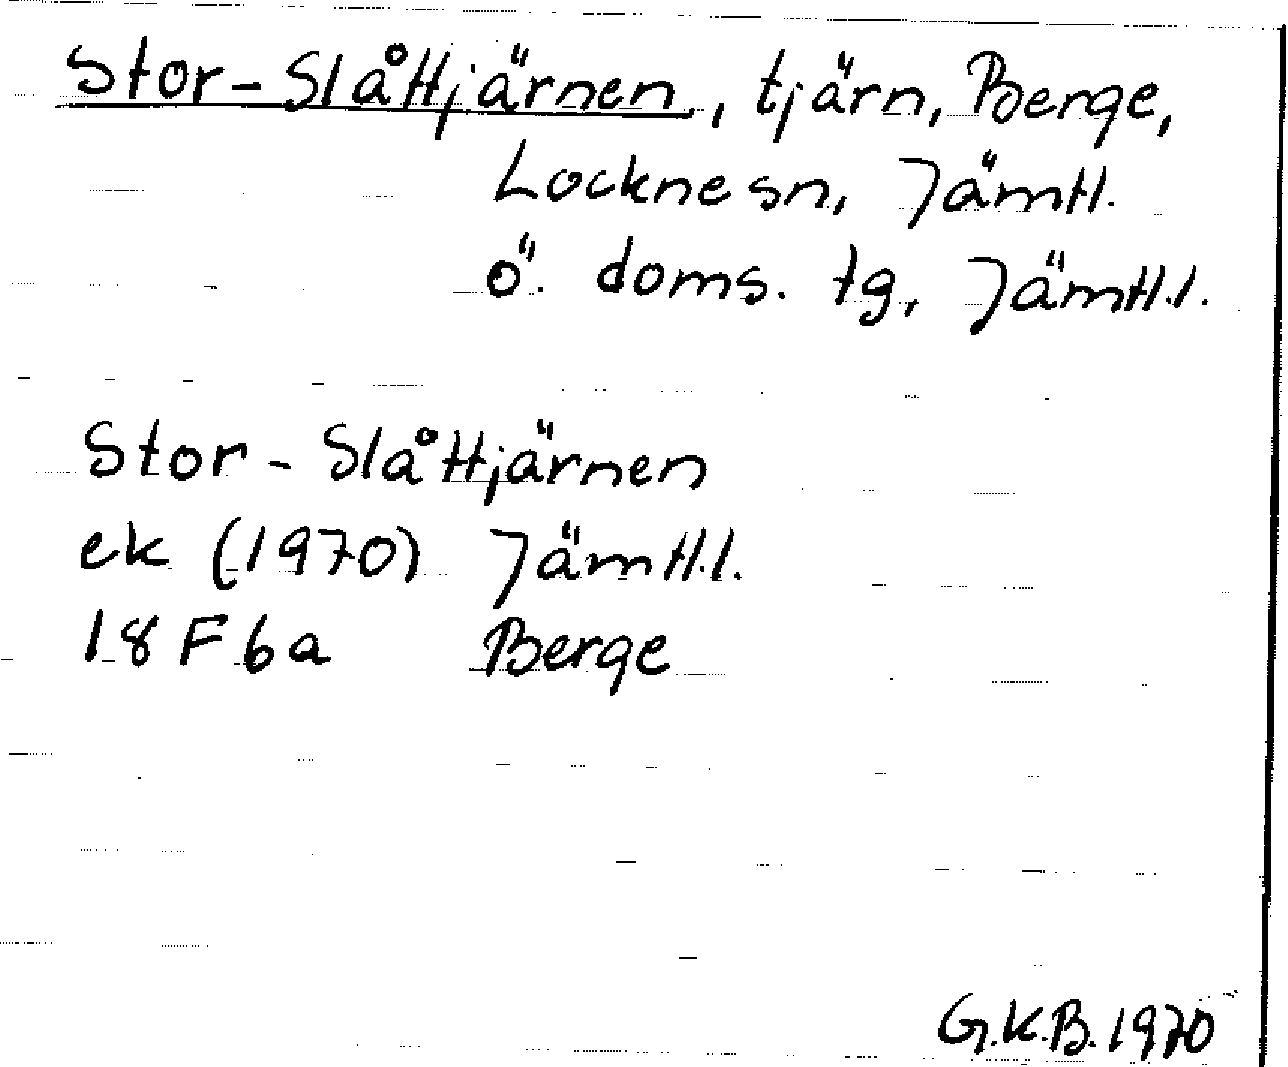 Stor-Slåttjärnen, tjärn, Berge,
Locknesn, Jämtl.
ö. doms. tg, Jämtl.l.
Stor-Slåttjärnen
ek (1970) Jämtl.l.
18F6a Berge
G.K.B. 1970